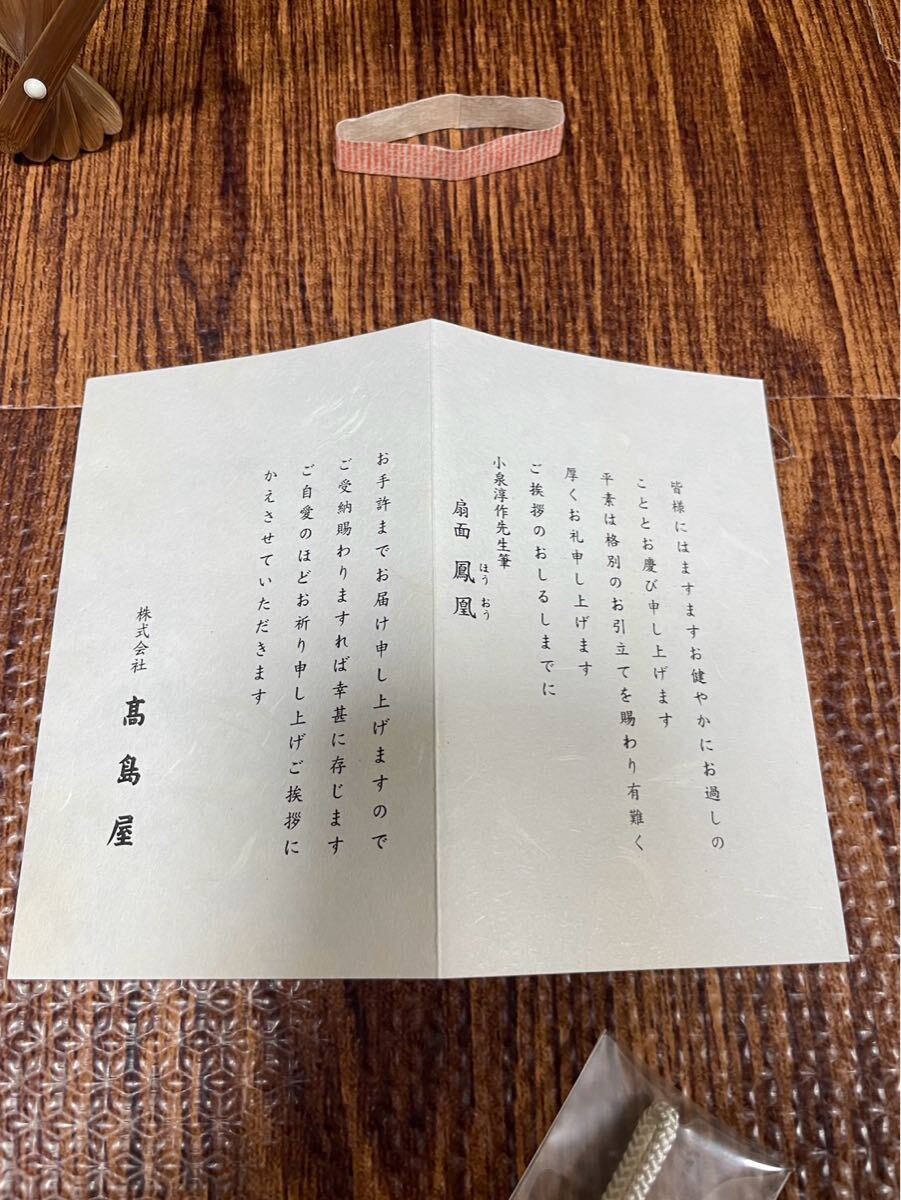 皆様にはますますお健やかにお過しの
こととお慶び申し上げます
平素は格別のお引立てを賜わり有難く
厚くお礼申し上げます
ご挨拶のおしるしまでに
小泉淳作先生筆
扇面 鳳凰
ほう おう
お手許までお届け申し上げますので
ご受納賜わりますれば幸甚に存じます
ご自愛のほどお祈り申し上げご挨拶に
かえさせていただきます
株式会社 髙島屋